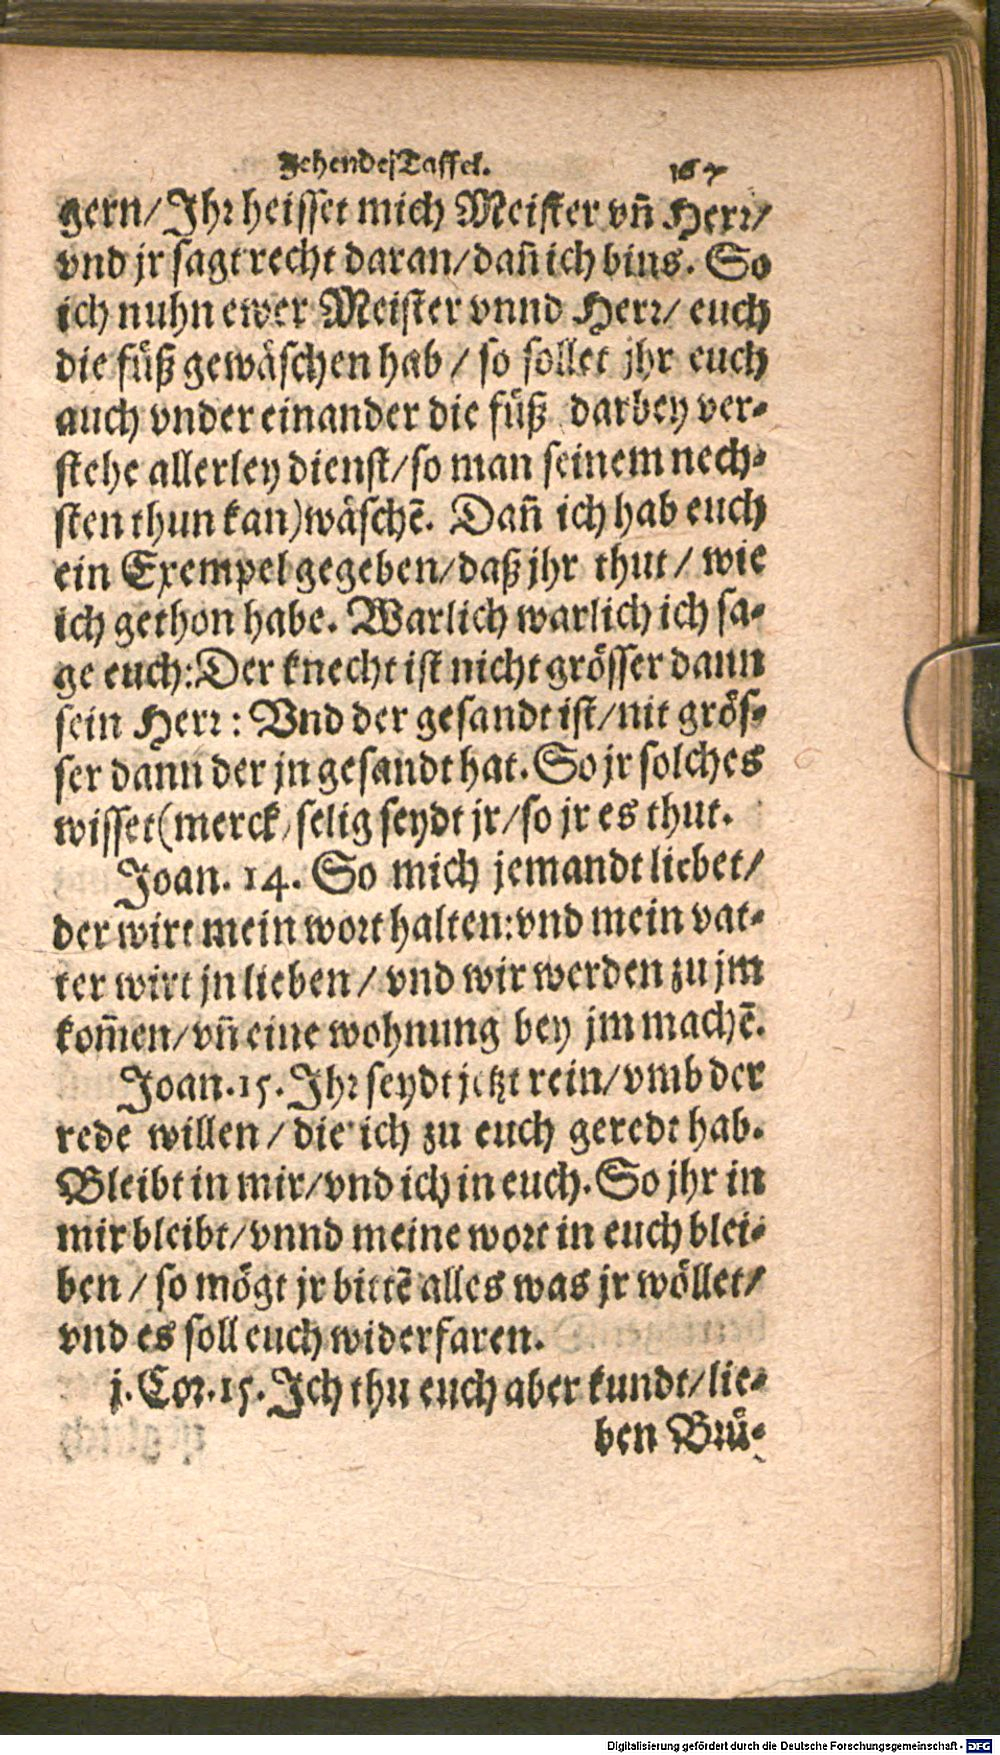 Zehende Taffel. 167
gern/ Ihr heisset mich Meister vñ Herr/
vnd jr sagt recht daran/ dañ ich bins. So
ich nuhn ewer Meister vnnd Herr/ euch
die füß gewäschen hab / so sollet jhr euch
auch vnder einander die füß darbey ver-
stehe allerley dienst/ so man seinem nech-
sten thun kan) wäschẽ. Dañ ich hab euch
ein Exempel gegeben/ daß jhr thut / wie
ich gethon habe. Warlich warlich ich sa-
ge euch: Der knecht ist nicht grösser dann
sein Herr: Vnd der gesandt ist/ nit grös-
ser dann der jn gesandt hat. So jr solches
wisset (merck, selig seydt jr/ so jr es thut.
Joan. 14. So mich jemandt liebet/
der wirt mein wort halten: vnd mein vat-
ter wirt jn lieben / vnd wir werden zu jm
kom̃en/ vñ eine wohnung bey jm machẽ.
Joan. 15. Ihr seydt jetzt rein/ vmb der
rede willen / die ich zu euch geredt hab.
Bleibt in mir/ vnd ich in euch. So jhr in
mir bleibt/ vnnd meine wort in euch blei-
ben / so mögt jr bittẽ alles was jr wöllet/
vnd es soll euch widerfaren.
j. Cor. 15. Ich thu euch aber kundt/ lie-
ben Brü-
Digitalisierung gefördert durch die Deutsche Forschungsgemeinschaft - DFG